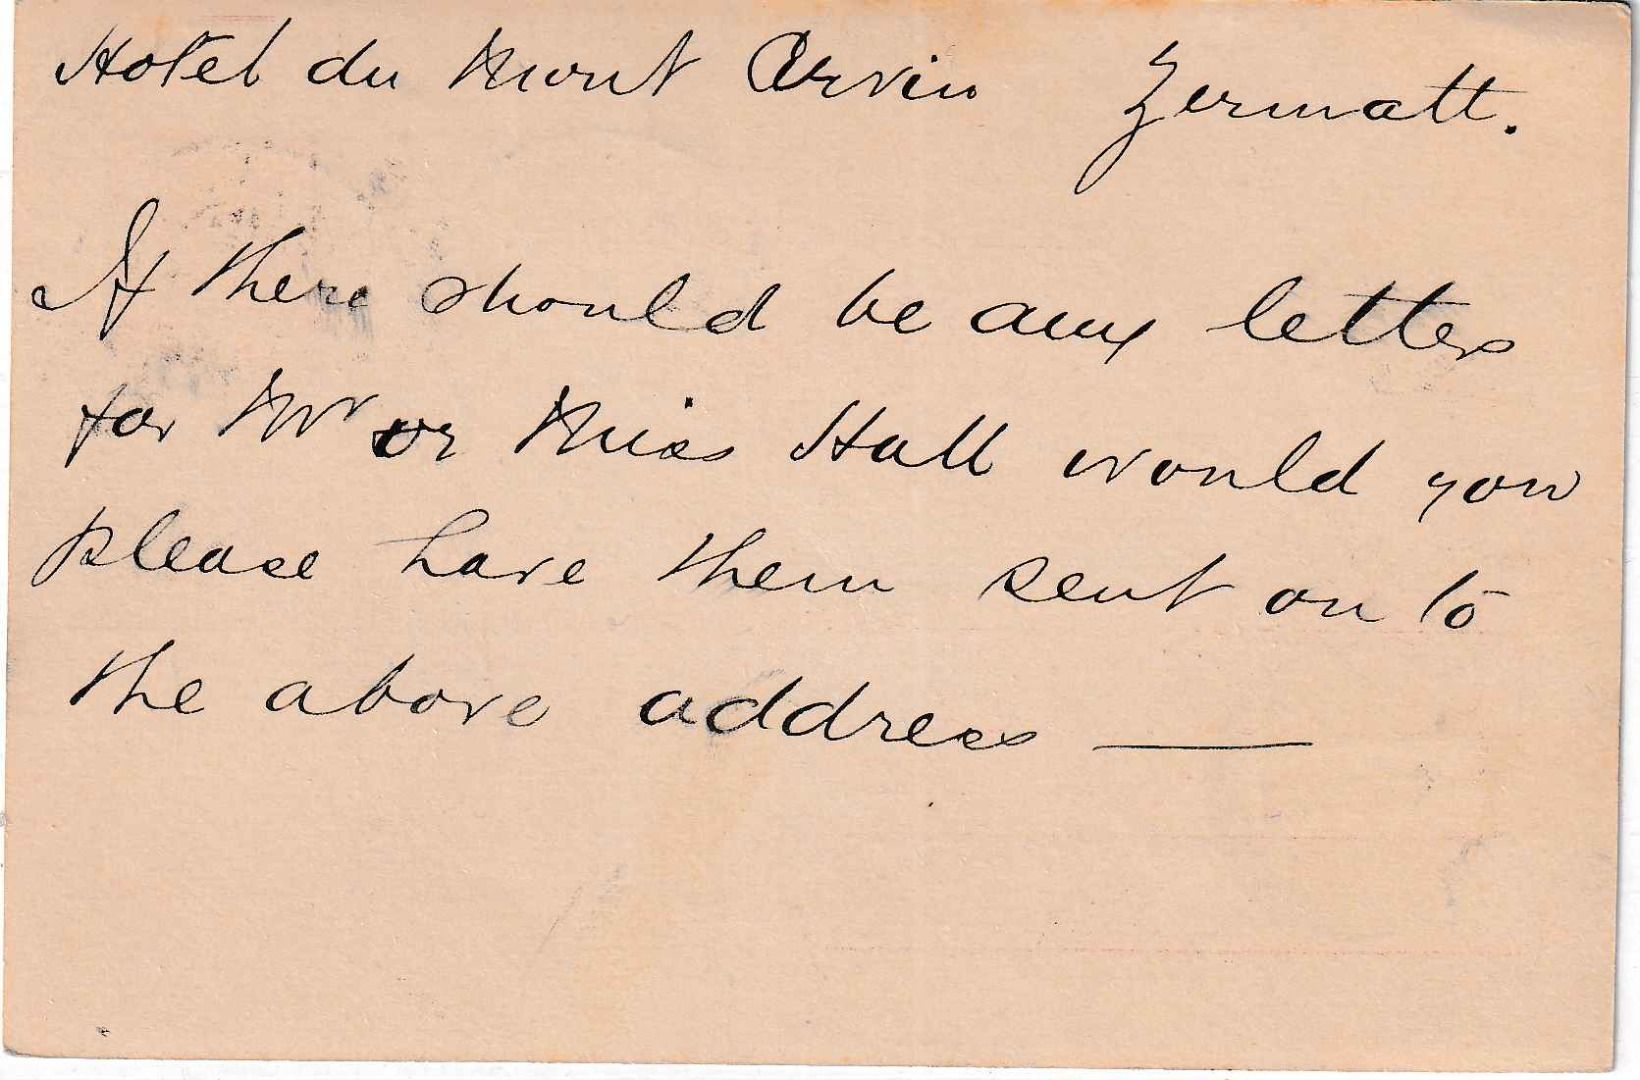 Hotel du Mont Cervin Zermatt.
If there should be any letters
for Mr or Miss Hall would you
please have them sent on to
the above address —